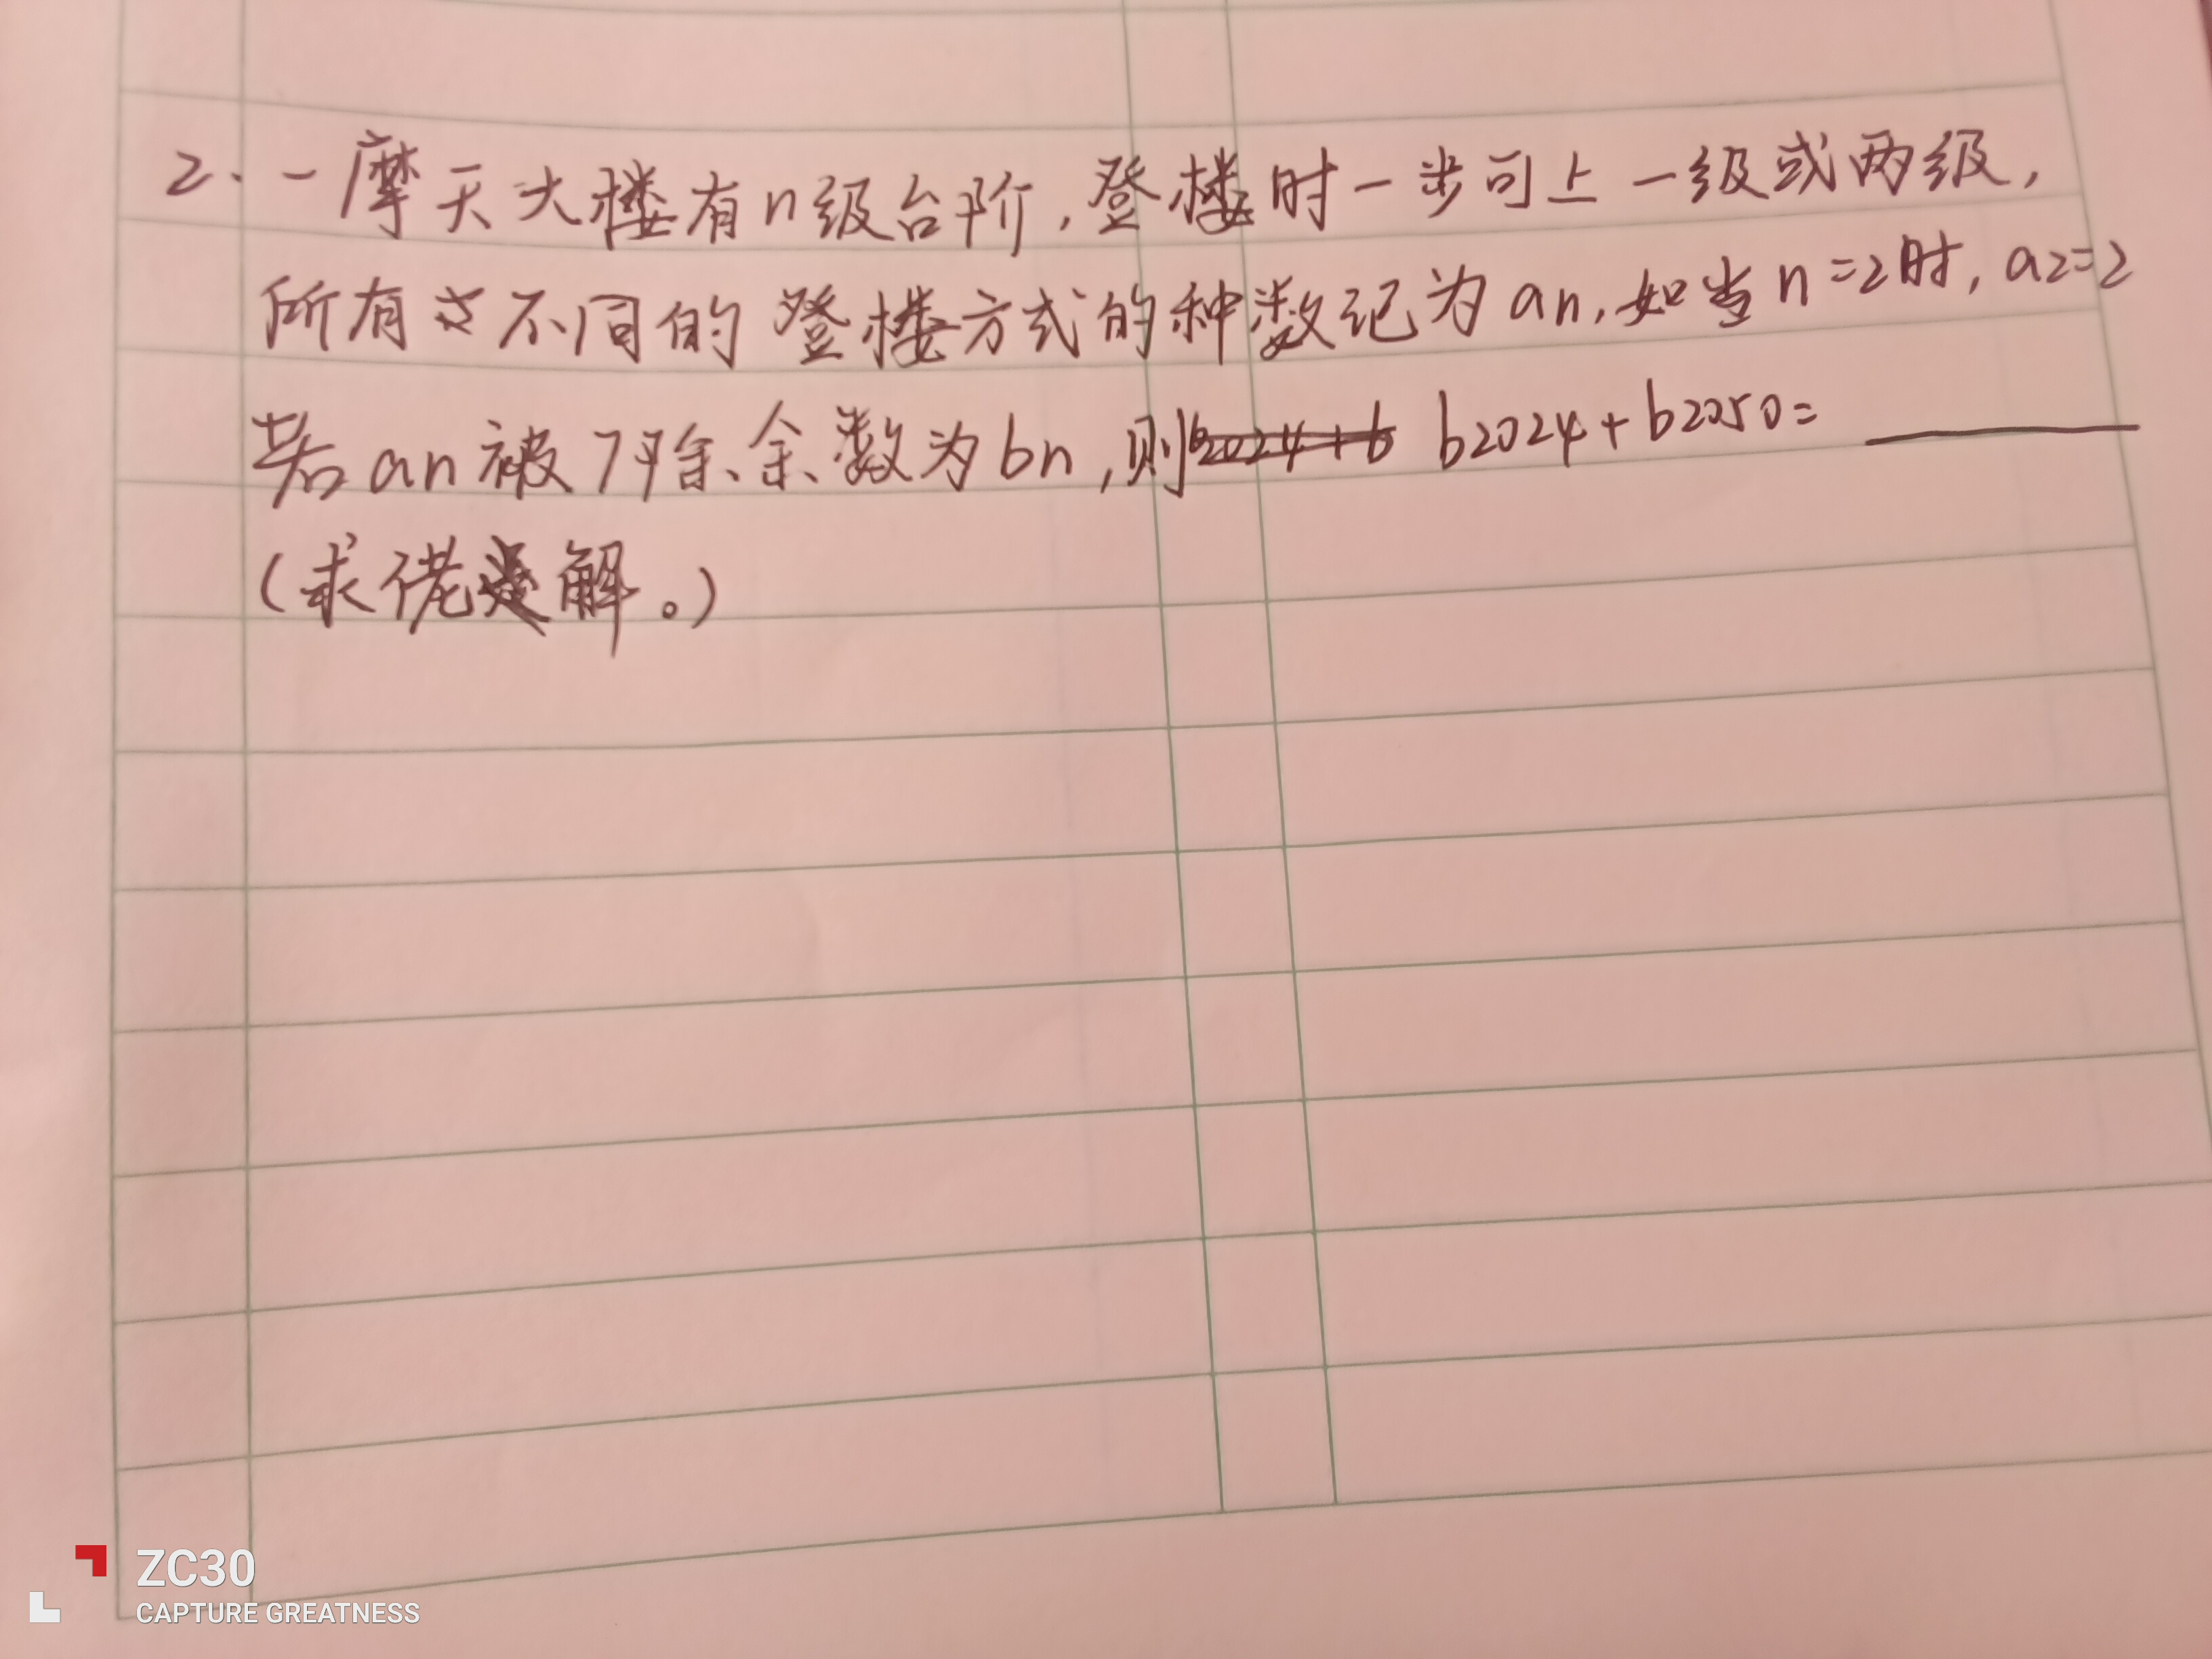 2. 一摩天大楼有n级台阶，登楼时一步可上一级或两级，
所有不同的登楼方式的种数记为an，如当n=2时，a2=2
若an被7除余数为bn，则b2024+b b2024+b2050=
（求佬解。）
ZC30
CAPTURE GREATNESS